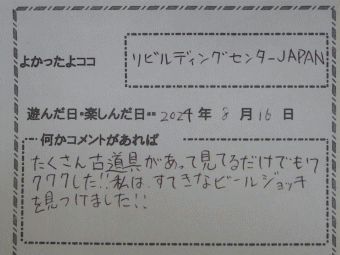 よかったよココ
リビルディングセンターJAPAN
遊んだ日・楽しんだ日・・ 2024 年 8 月 16 日
何かコメントがあれば
たくさん古道具があって見てるだけでもワ
クワクした!!私は、すてきなビールジョッキ
を見つけました!!